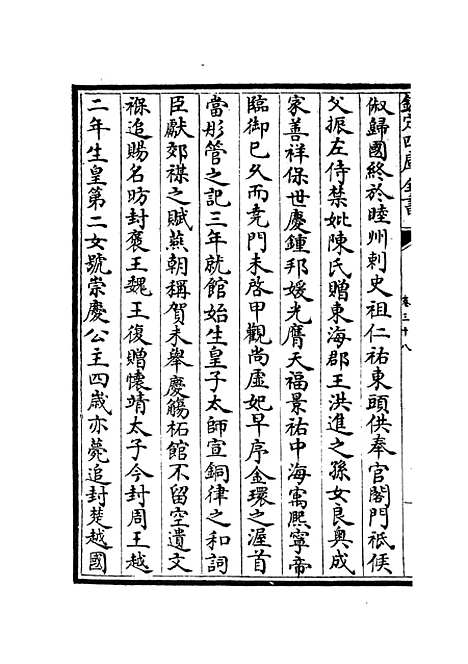 欽定四庫全書
卷三十八
俶歸國終於睦州刺史祖仁祐東頭供奉官閤門祗候
父振左侍禁妣陳氏贈東海郡王洪進之孫女良奧成
家善祥保世慶鍾邦媛光膺天福景祐中海㝢熈寧帝
臨御已久而堯門未啓甲觀尚虛妃早序金環之渥首
當彤管之記三年就館始生皇子太師宣銅律之和詞
臣獻郊禖之賦燕朝稱賀未舉慶觴柘館不留空遺文
褓追賜名昉封褒王魏王復贈懷靖太子今封周王越
二年生皇第二女號崇慶公主四歲亦薨追封楚越國